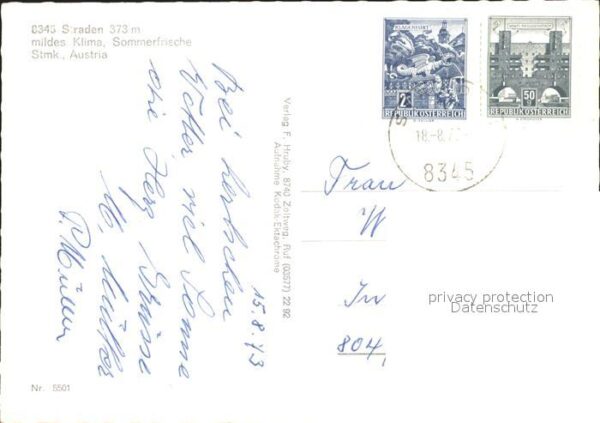 8345 Straden 373 m
mildes Klima, Sommerfrische
Stmk., Austria
KLAGENFURT
2S
REPUBLIK ÖSTERREICH
50
REPUBLIK ÖSTERREICH
18.-8.7
8345
15.8.73
Bei herbstlichen
Wetter, viel Sonne
die Herz Grüsse
P. Müller
Verlag F. Hruby, 8740 Zeltweg, Ruf (03577) 22 92
Aufnahme Kodak-Ektachrome
Frau
W
In
804
privacy protection
Datenschutz
Nr. 5501